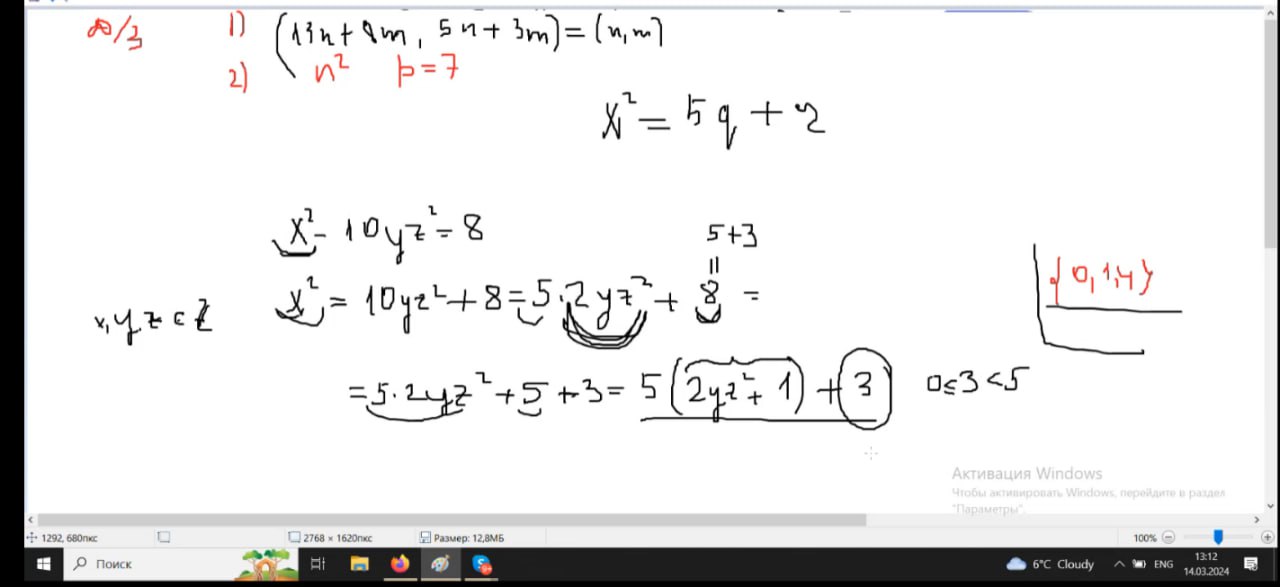 д/з 1) (13n + 8m, 5n + 3m) = (n, m)
2) n² p = 7
x² = 5q + r
x² - 10yz² = 8
5+3
x, y z ∈ Z x² = 10yz² + 8 = 5·2yz² + 8 = {0, 1, 4}
= 5·2yz² + 5 + 3 = 5(2yz² + 1) + 3 0 ≤ 3 < 5
Активация Windows
Чтобы активировать Windows, перейдите в раздел
"Параметры".
1292, 680пкс 2768 × 1620пкс Размер: 12,8МБ 100%
Поиск 6°C Cloudy ENG 13:12
14.03.2024